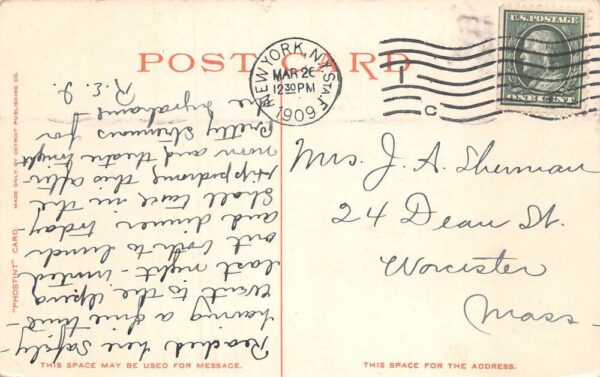 POST CARD
NEW YORK, N.Y. STA. F
MAR 26
12 30 PM
1909
C
U.S. POSTAGE
ONE CENT
Mrs. J. A. Sherman
24 Dean St.
Worcester
Mass-
Reached here safely-
having a fine time-
Went to the Opera
last night-invited
out both to lunch
and dinner today
Shall take in the
Hippodrome this after-
noon and theatre tonight
Pretty strenuous for
the
R.E.J.
"PHOSTINT" CARD
MADE ONLY BY DETROIT PUBLISHING CO.
THIS SPACE MAY BE USED FOR MESSAGE.
THIS SPACE FOR THE ADDRESS.